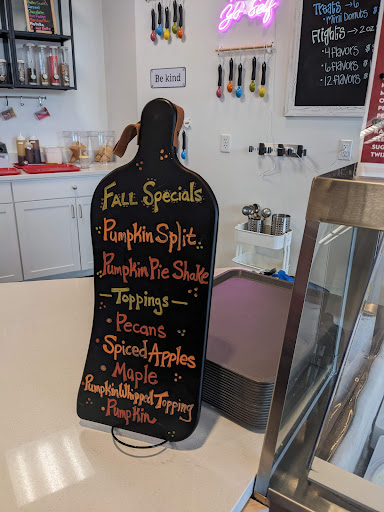 Be kind
Treats 6
• Mini Donuts
Flights → 2 oz
• 4 Flavors $
• 6 Flavors $
• 12 Flavors $
Fall Specials
Pumpkin Split
Pumpkin Pie Shake
— Toppings —
Pecans
Spiced Apples
Maple
Pumpkin Whipped Topping
Pumpkin